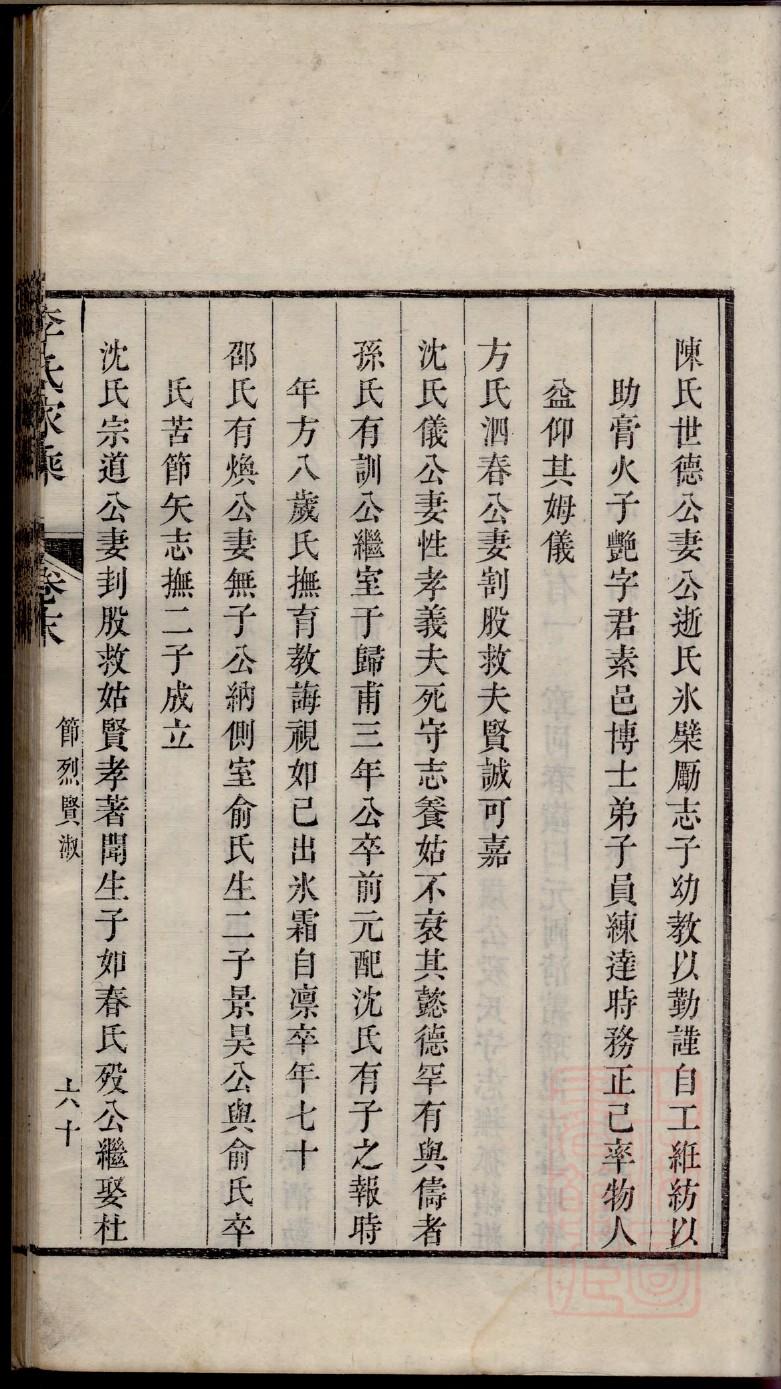 陳氏世德公妻公逝氏氷檗勵志子幼教以勤謹自工絍紡以
助膏火子艷字君素邑博士弟子員練達時務正己率物人
益仰其姆儀
方氏泗春公妻割股救夫賢誠可嘉
沈氏儀公妻性孝義夫死守志養姑不衰其懿德罕有與儔者
孫氏有訓公繼室于歸甫三年公卒前元配沈氏有子之報時
年方八歲氏撫育教誨視如己出氷霜自凛卒年七十
邵氏有煥公妻無子公納側室俞氏生二子景吴公與俞氏卒
氏苦節矢志撫二子成立
沈氏宗道公妻刲股救姑賢孝著聞生子如春氏歿公繼娶杜
李氏家乘
卷末
節烈賢淑
六十